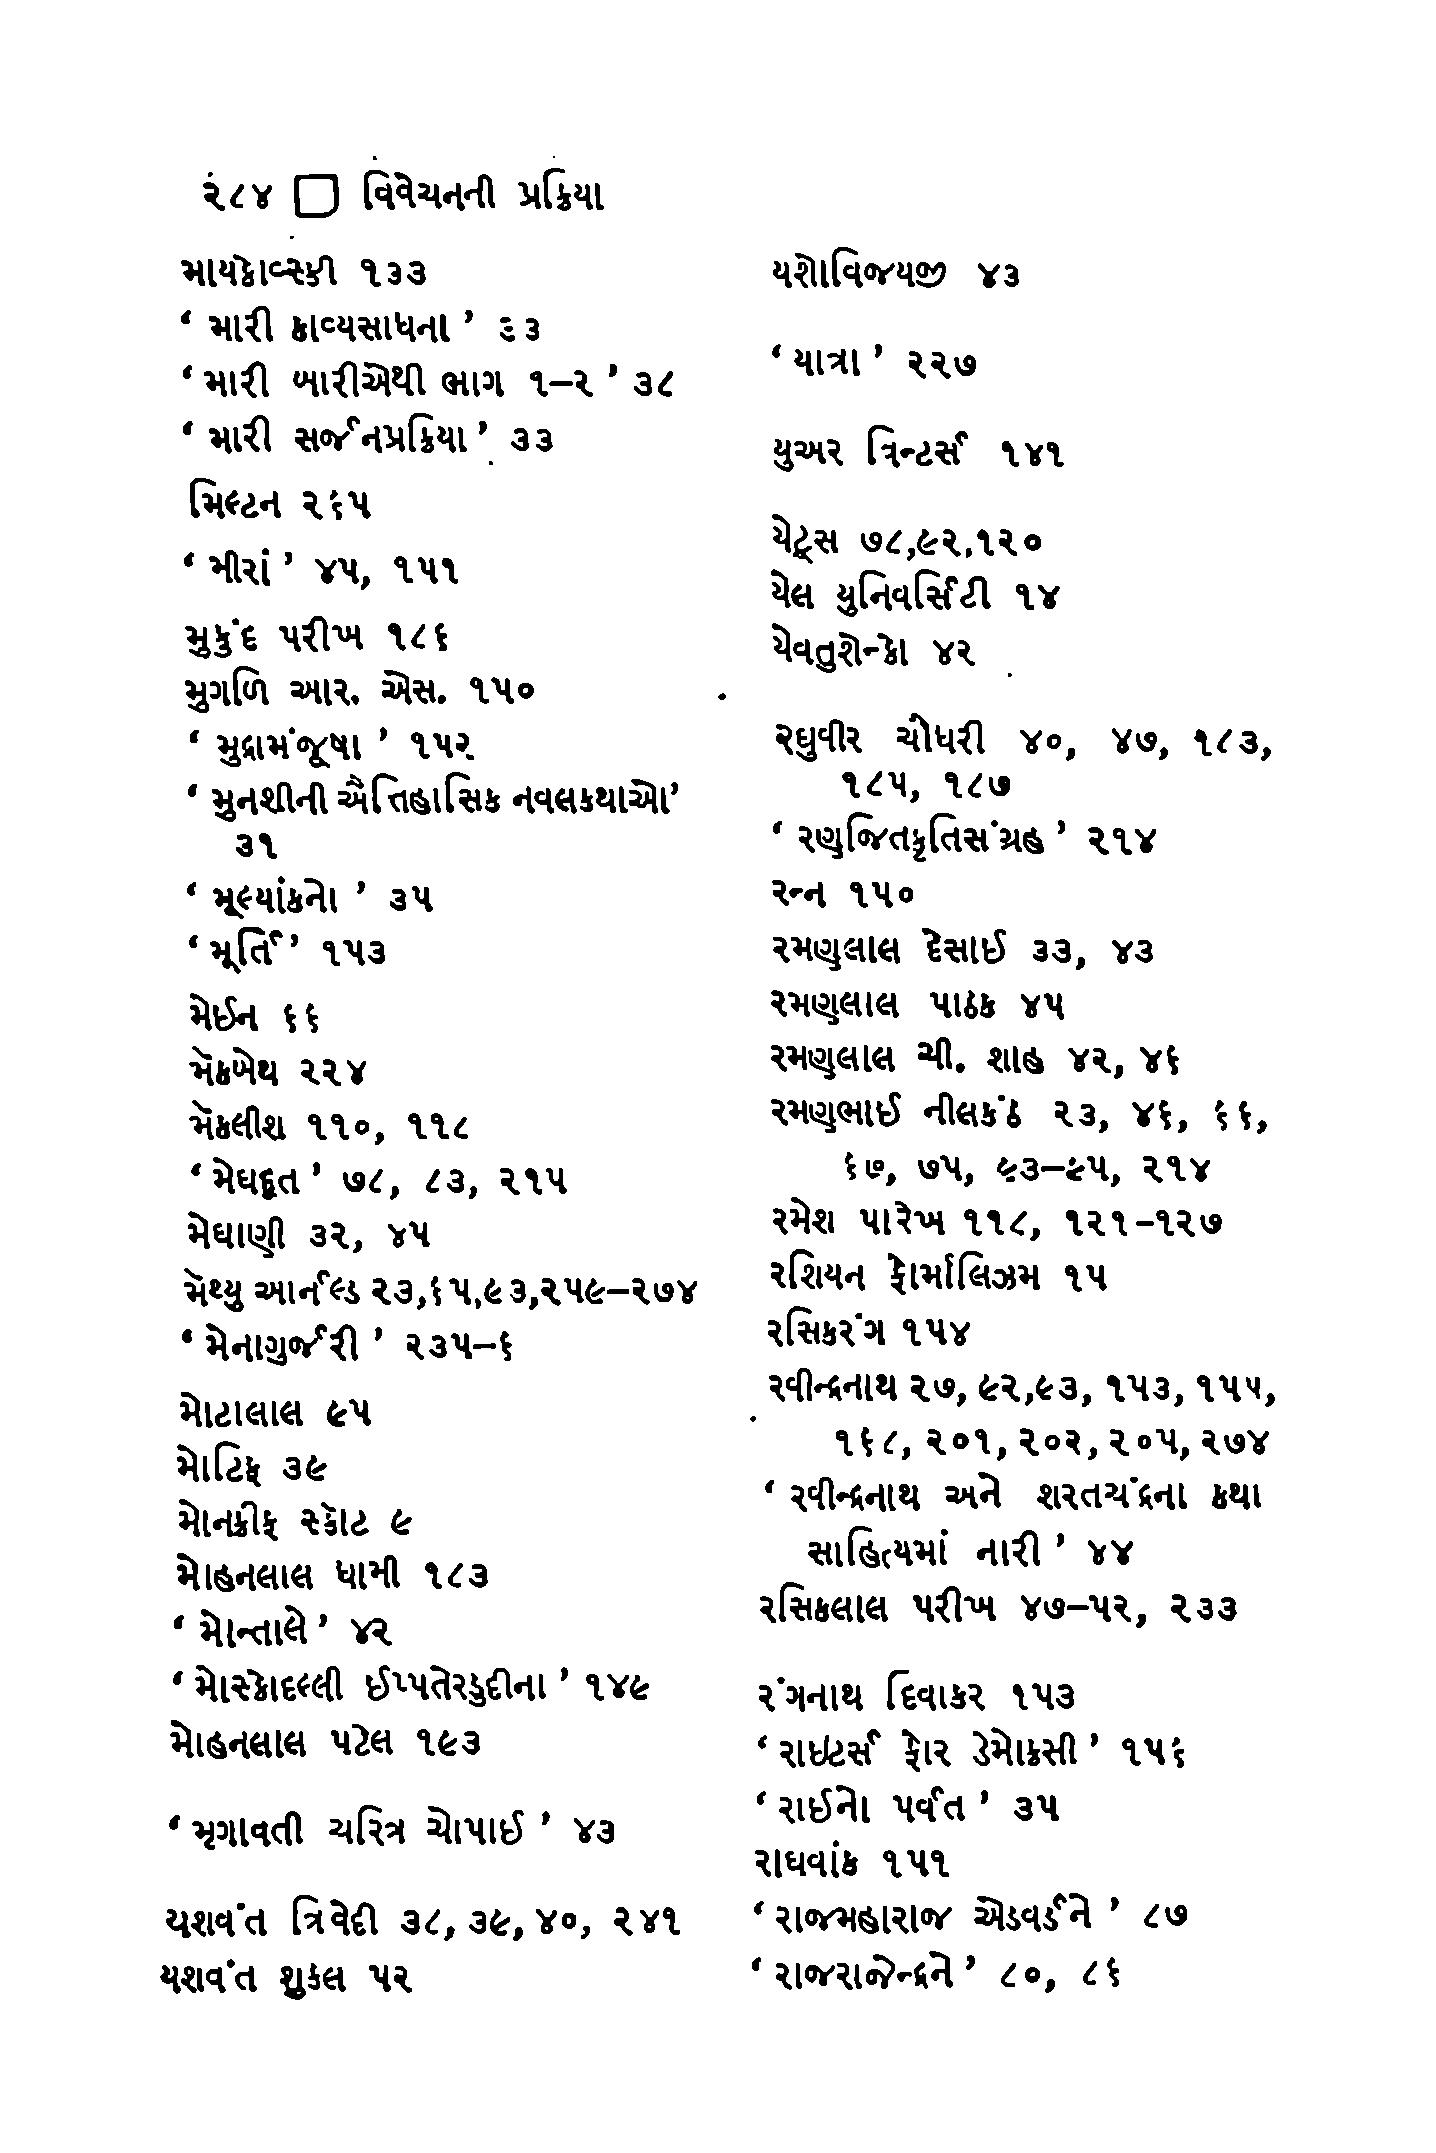 ૨૮૪ □ વિવેચનની પ્રક્રિયા
માયકોવ્સ્કી ૧૩૩
‘ મારી કાવ્યસાધના ’ ૬૩
‘ મારી બારીએથી ભાગ ૧–૨ ’ ૩૮
‘ મારી સર્જનપ્રક્રિયા ’ ૩૩
મિલ્ટન ૨૬૫
‘ મીરાં ’ ૪૫, ૧૫૧
મુકુંદ પરીખ ૧૮૬
મુગળિ આર. એસ. ૧૫૦
‘ મુદ્રામંજૂષા ’ ૧૫૨
‘ મુનશીની ઐતિહાસિક નવલકથાઓ’
૩૧
‘ મૂલ્યાંકનો ’ ૩૫
‘ મૂર્તિ ’ ૧૫૩
મેઈન ૬૬
મૅકબેથ ૨૨૪
મૅકલીશ ૧૧૦, ૧૧૮
‘ મેઘદૂત ’ ૭૮, ૮૩, ૨૧૫
મેઘાણી ૩૨, ૪૫
મૅથ્યુ આર્નલ્ડ ૨૩,૬૫,૯૩,૨૫૯–૨૭૪
‘ મેનાગુર્જરી ’ ૨૩૫–૬
મોટાલાલ ૯૫
મોટિફ ૩૯
મોનક્રીફ સ્કૉટ ૯
મોહનલાલ ધામી ૧૮૩
‘ મોન્તાલે ’ ૪૨
‘ મોસ્કોદલ્લી ઈપ્પતેરડુદીના ’ ૧૪૯
મોહનલાલ પટેલ ૧૯૩
‘ મૃગાવતી ચરિત્ર ચોપાઈ ’ ૪૩
યશવંત ત્રિવેદી ૩૮, ૩૯, ૪૦, ૨૪૧
યશવંત શુકલ ૫૨
યશોવિજયજી ૪૩
‘ યાત્રા ’ ૨૨૭
યુઅર ત્રિન્ટર્સ ૧૪૧
યેટ્સ ૭૮,૯૨,૧૨૦
યેલ યુનિવર્સિટી ૧૪
યેવતુશેન્કો ૪૨
રઘુવીર ચૌધરી ૪૦, ૪૭, ૧૮૩,
૧૮૫, ૧૮૭
‘ રણજિતકૃતિસંગ્રહ ’ ૨૧૪
રન્ન ૧૫૦
રમણલાલ દેસાઈ ૩૩, ૪૩
રમણલાલ પાઠક ૪૫
રમણલાલ ચી. શાહ ૪૨, ૪૬
રમણભાઈ નીલકંઠ ૨૩, ૪૬, ૬૬,
૬૭, ૭૫, ૯૩–૯૫, ૨૧૪
રમેશ પારેખ ૧૧૮, ૧૨૧-૧૨૭
રશિયન ફોર્માલિઝમ ૧૫
રસિકરંગ ૧૫૪
રવીન્દ્રનાથ ૨૭, ૯૨,૯૩, ૧૫૩, ૧૫૫,
૧૬૮, ૨૦૧, ૨૦૨, ૨૦૫, ૨૭૪
‘ રવીન્દ્રનાથ અને શરતચંદ્રના કથા
સાહિત્યમાં નારી ’ ૪૪
રસિકલાલ પરીખ ૪૭–૫૨, ૨૩૩
રંગનાથ દિવાકર ૧૫૩
‘ રાઇટર્સ ફોર ડેમોક્રસી ’ ૧૫૬
‘ રાઈનો પર્વત ’ ૩૫
રાઘવાંક ૧૫૧
‘ રાજમહારાજ એડવર્ડને ’ ૮૭
‘ રાજરાજેન્દ્રને ’ ૮૦, ૮૬